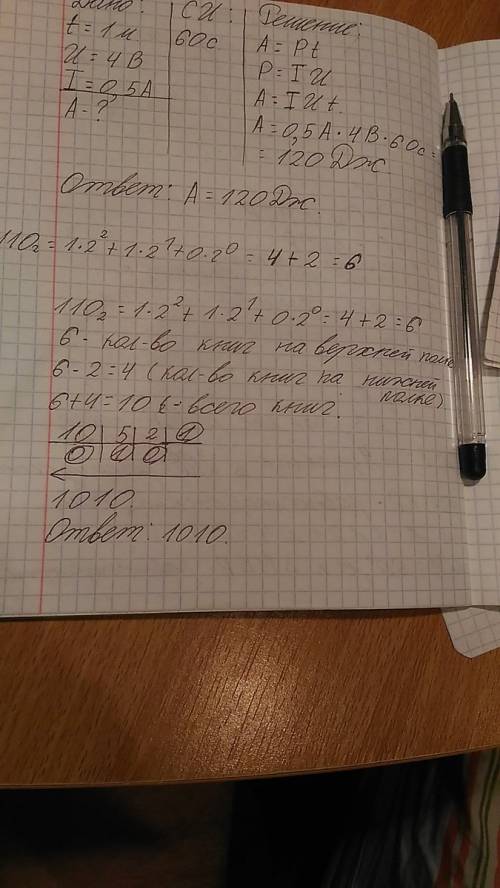 Дано:
t = 1 м
U = 4 В
I = 0,5 А
А - ?
СИ:
60 с
Решение:
A = Pt
P = I U
A = I U t.
A = 0,5 А · 4 В · 60 с =
= 120 Дж.
Ответ: А = 120 Дж.
110₂ = 1·2² + 1·2¹ + 0·2⁰ = 4 + 2 = 6
110₂ = 1·2² + 1·2¹ + 0·2⁰ = 4 + 2 = 6
6 - кол-во книг на верхней полке
6 - 2 = 4 (кол-во книг на нижней
полке)
6 + 4 = 10 - всего книг.
10 5 2 1
0 1 0
1010.
Ответ: 1010.